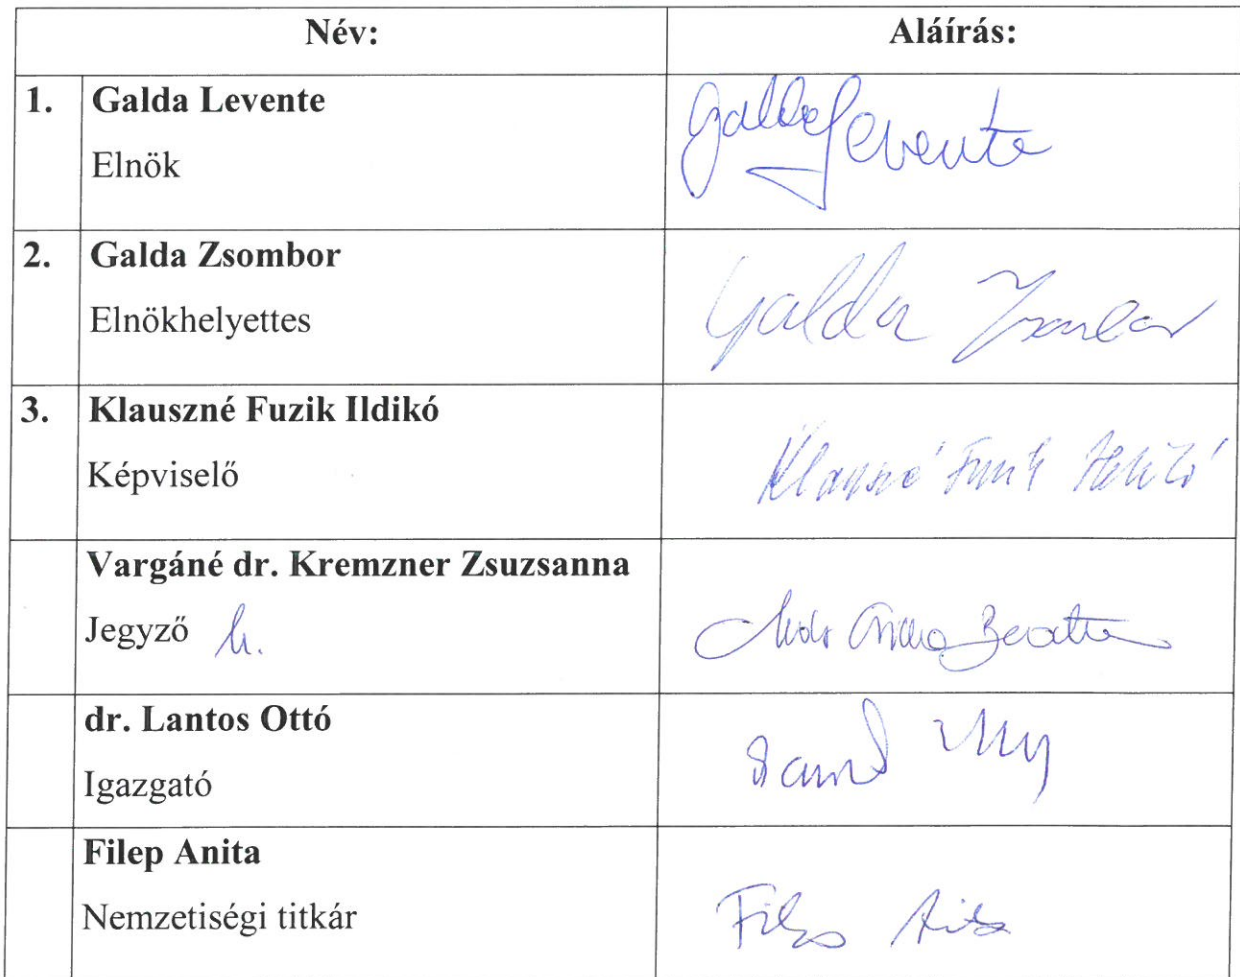 Név: Aláírás:
1. Galda Levente
Elnök
Galda Levente
2. Galda Zsombor
Elnökhelyettes
Galda Zsombor
3. Klauszné Fuzik Ildikó
Képviselő
Klauszné Fuzik Ildikó
Vargáné dr. Kremzner Zsuzsanna
Jegyző h.
Beatta
dr. Lantos Ottó
Igazgató
Filep Anita
Nemzetiségi titkár
Filep Anita